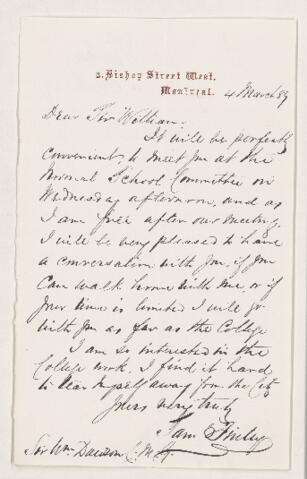 2, Bishop Street West.
Montreal.
4 March 89
Dear Sir William.
It will be perfectly
convenient to meet you at the
Normal School Committee on
Wednesday afternoon, and as
I am free after our meeting,
I will be very pleased to have
a conversation with you, if you
can walk home with me, or if
your time is limited I will go
with you as far as the College
I am so interested in the
College work, I find it hard
to tear myself away from the City
Yours very truly
Sam Finley
Sir Wm Dawson C.M.G.